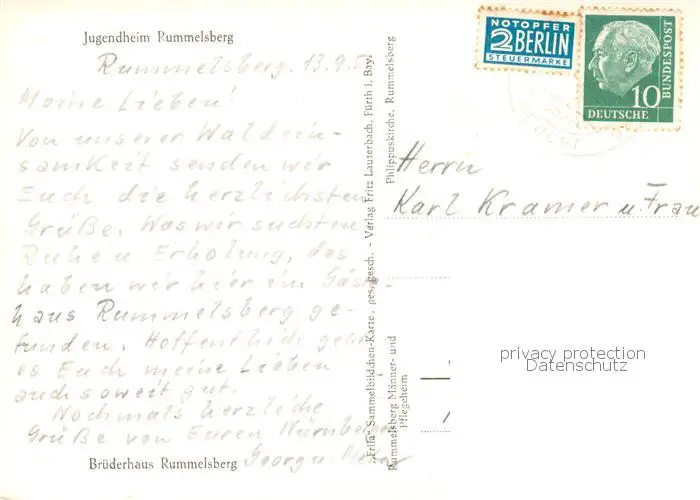 Jugendheim Rummelsberg
Rummelsberg, 13.9.5
Meine Lieben!
Von unserer Waldein-
samkeit senden wir
Euch die herzlichsten
Grüße. Was wir suchten
Ruhe u Erholung, das
haben wir hier im Gäste-
haus Rummelsberg ge-
funden. Hoffentlich geht
es Euch meine Lieben
auch soweit gut.
Nochmals herzliche
Grüße von Euren Nürnberger
Georg u.
Brüderhaus Rummelsberg
"Frila" Sammelbildchen-Karte, ges. gesch. - Verlag Fritz Lauterbach, Fürth i. Bay.
Philippuskirche, Rummelsberg
Rummelsberg Männer- und
Pflegeheim
NOTOPFER
2 BERLIN
STEUERMARKE
10
DEUTSCHE
BUNDESPOST
Herrn
Karl Kramer u. Frau
privacy protection
Datenschutz